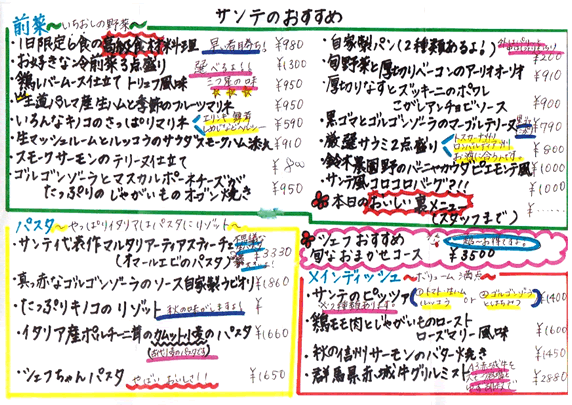 サンテのおすすめ
前菜 ~いちおしの野菜~
・1日限定5食の高級食材料理 早い者勝ち! ¥980
・お好きな冷前菜3点盛り 選べるよ!! ¥1300
・鶏レバームース仕立て トリュフ風味 三つ星の味 ¥950
・王道パルマ産生ハムと季節のフルーツマリネ ¥950
・いろんなキノコのさっぱりマリネ ¥590
・生マッシュルームとルッコラのサラダ スモークハム添え ¥910
・スモークサーモンのテリーヌ仕立て ¥800
・ゴルゴンゾーラとマスカルポーネチーズが
たっぷりのじゃがいものオーブン焼き ¥950
・自家製パン(2種類あるよ!) ¥200
・旬野菜と厚切りベーコンのアーリオオーリオ ¥910
・厚切りなすとズッキーニのポワレ
こがしアンチョビソース ¥900
・黒ゴマとゴルゴンゾーラのマーブルテリーヌ ¥790
・厳選サラミ2点盛り お酒に合うよ ¥800
・鈴木農園野のバーニャカウダ ピエモンテ風 ¥1000
・サンテ風コロコロバーグ?!! ¥1000
本日のおいしい裏メニュー
(スタッフまで) ¥……
パスタ ~やっぱりイタリアはパスタにリゾット~
・サンテ代表作マルタリアーティアスティーチェ
(オマールエビのパスタ) ¥3330
・真っ赤なゴルゴンゾーラのソース自家製ラビオリ ¥1860
・たっぷりキノコのリゾット 秋の味がしますよ! ¥
・イタリア産ポルチーニ茸のカムット小麦のパスタ ¥1660
(古代小麦のパスタです)
・シェフちゃんパスタ やばいおいしさ!! ¥1650
シェフおすすめ
旬なおまかせコース ¥3500
メインディッシュ ~ボリューム満点~
・サンテのピッツァ ①トマト・生ハム or ②ゴルゴンゾーラとはちみつ ¥1400
・鶏モモ肉とじゃがいものロースト
ローズマリー風味 ¥1600
・秋の信州サーモンのバター焼き ¥1450
・群馬県赤城牛グリルミスト ¥2880